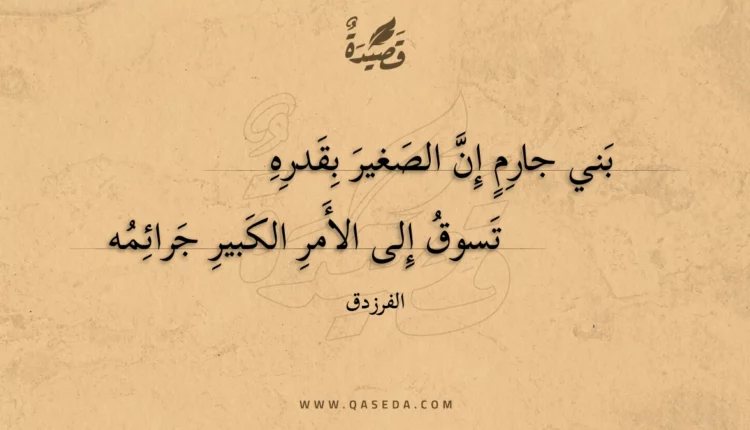 قَصِيدَةٌ
بَني جارِمٍ إِنَّ الصَغيرَ بِقَدرِهِ
تَسوقُ إِلى الأَمرِ الكَبيرِ جَرائِمُه
الفرزدق
WWW.QASEDA.COM